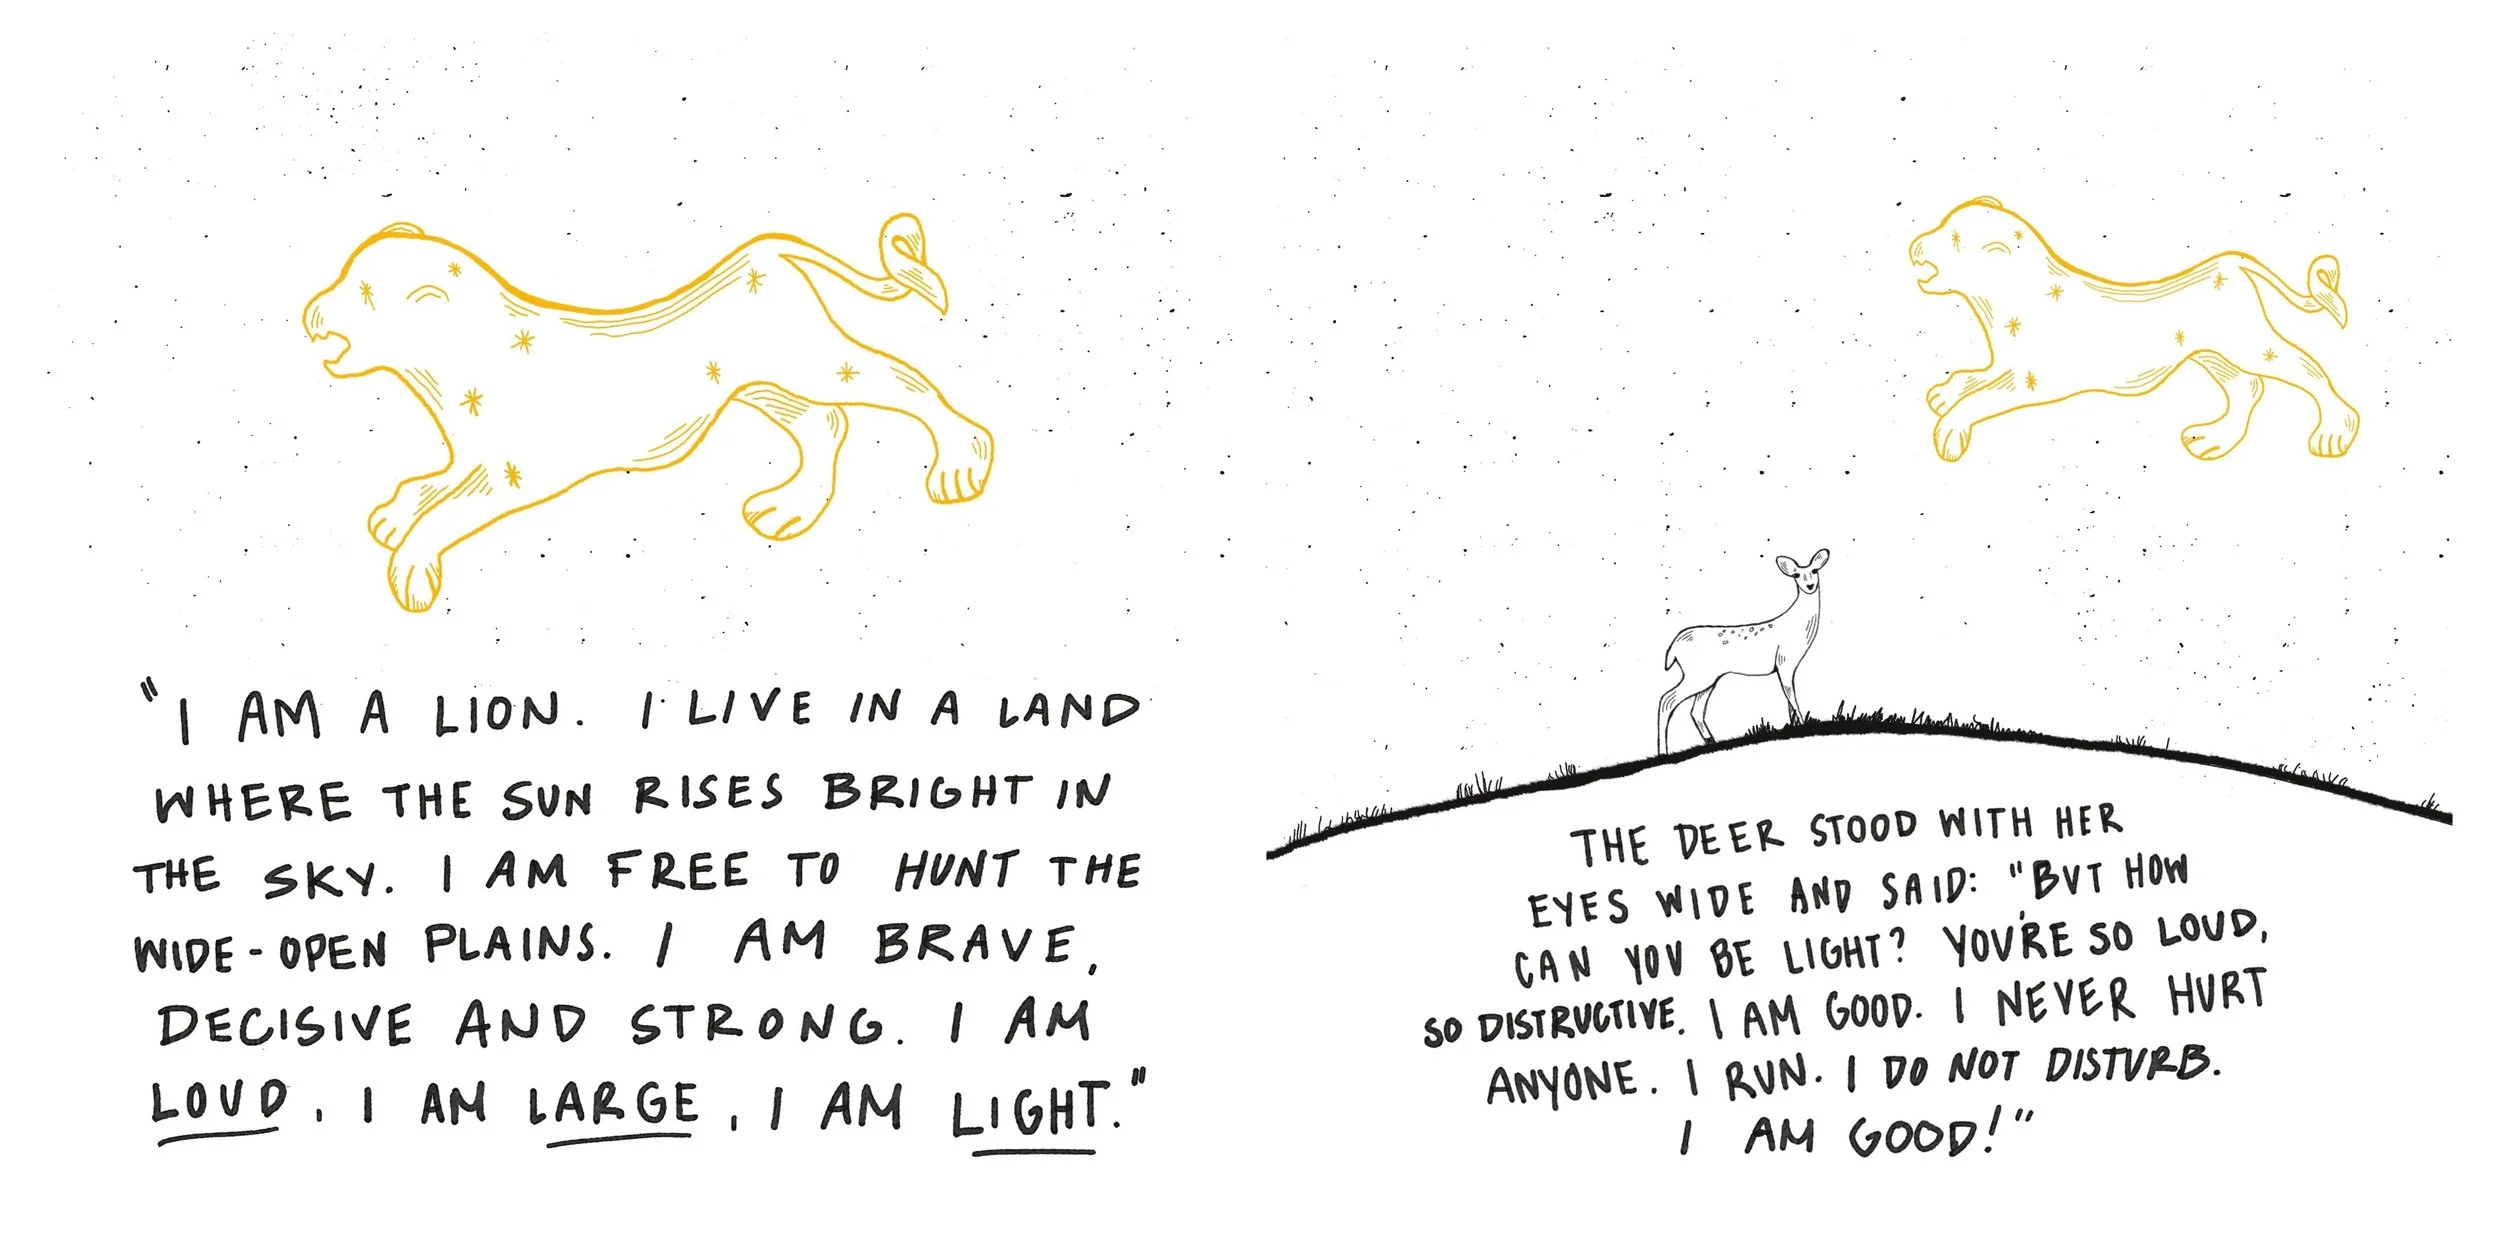 "I AM A LION. I LIVE IN A LAND
WHERE THE SUN RISES BRIGHT IN
THE SKY. I AM FREE TO HUNT THE
WIDE-OPEN PLAINS. I AM BRAVE,
DECISIVE AND STRONG. I AM
LOUD, I AM LARGE, I AM LIGHT."
THE DEER STOOD WITH HER
EYES WIDE AND SAID: "BUT HOW
CAN YOU BE LIGHT? YOU'RE SO LOUD,
SO DISTRUCTIVE. I AM GOOD. I NEVER HURT
ANYONE. I RUN. I DO NOT DISTURB.
I AM GOOD!"